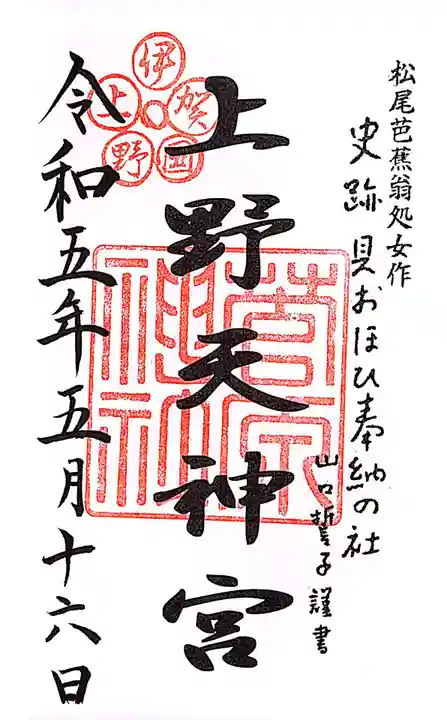 松尾芭蕉翁処女作
史跡 貝おほひ奉納の社
山口誓子謹書
上野天神宮
伊賀國上野
令和五年五月十六日